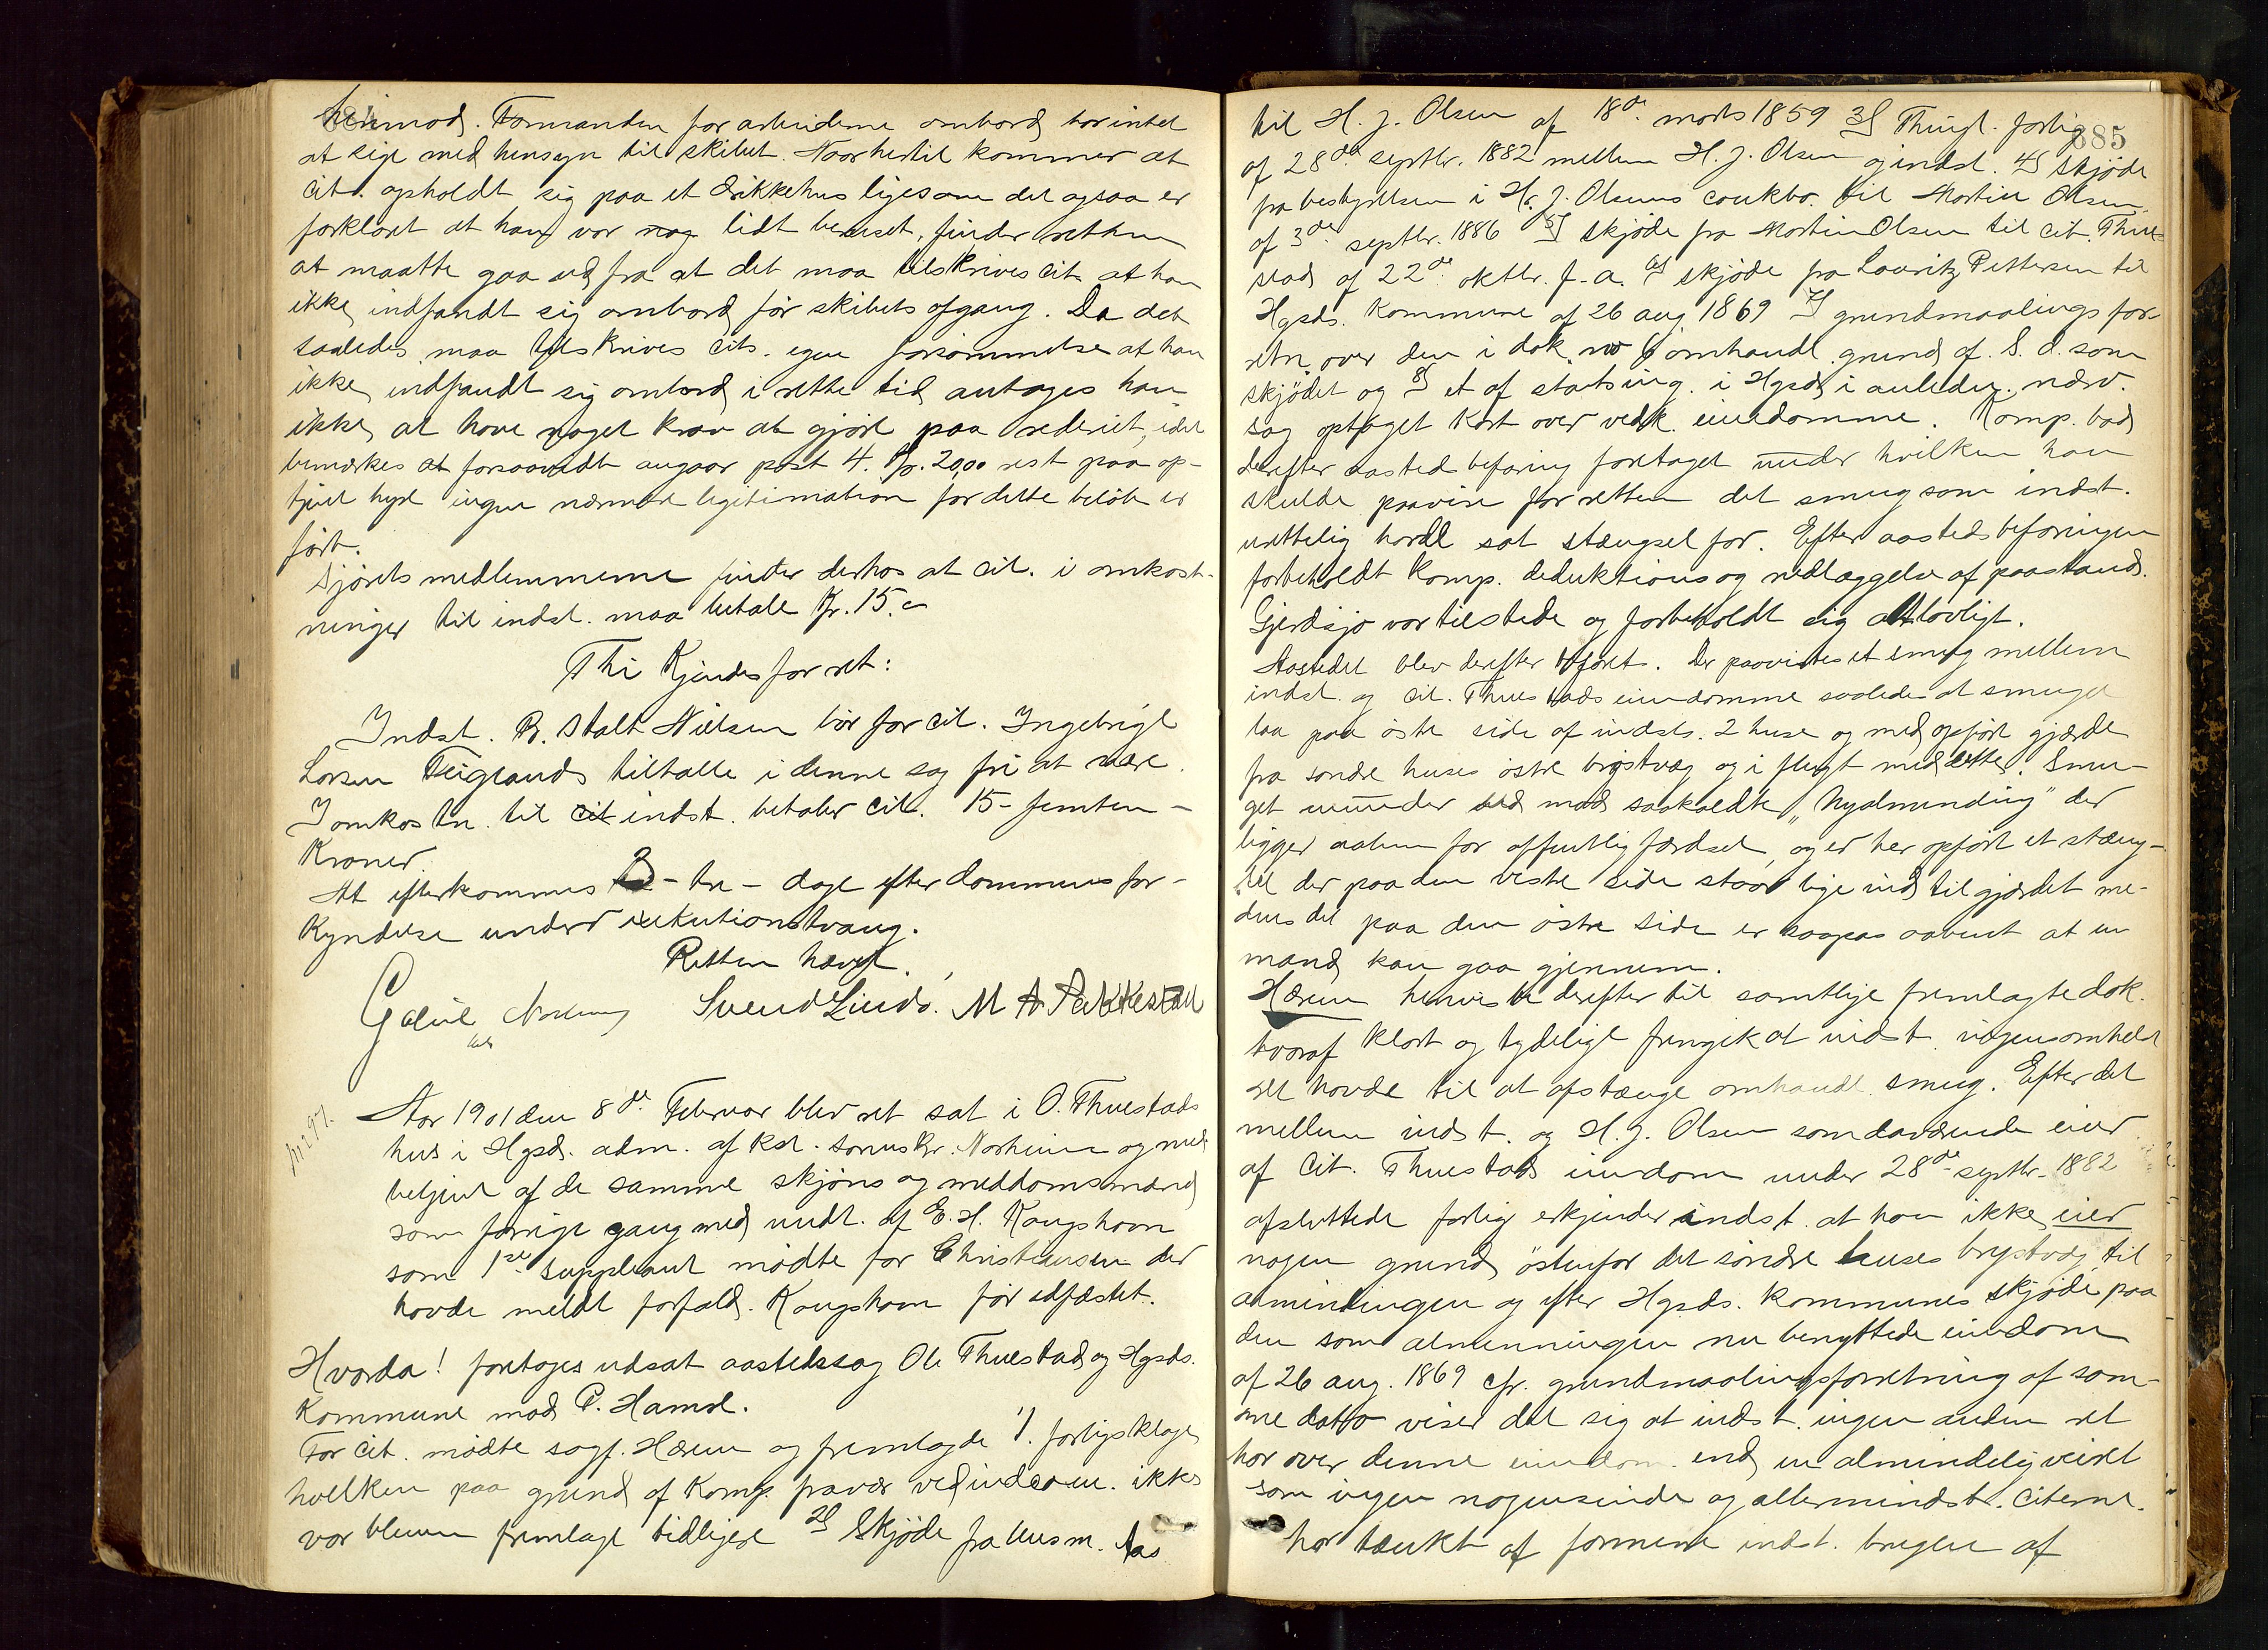 384
herimod. Formanden for arbeiderne ombord har intet
at sige med hensyn til skibet. Naar hertil kommer at
cit. opholdt sig paa et drikkehus ligesom det ogsaa er
forklaret at han var nog lidt beruset, finder retten
at maatte gaa ud fra at det maa tilskrives cit. at han
ikke indfandt sig ombord før skibets afgang. Da det
saaledes maa tilskrives cits. egen forsømmelse at han
ikke indfandt sig ombord i rette tid antages han
ikke at have noget krav at gjøre paa rederiet, idet
bemærkes at forsaavidt angaar post 4. Kr. 20,00 rest paa op-
tjent hyre ingen nærmere legitimation for dette beløb er
ført.
Sjørets medlemmerne finder derhos at cit. i omkost-
ninger til indst. maa betale Kr. 15.-
Thi Kjendes for ret:
Indst. B. Stolt Nielsen bør for cit. Ingebrigt
Larsen Teiglands tiltale i denne sag fri at være.
I omkostn. til cit indst. betaler cit. 15 - femten -
Kroner.
At efterkommes 3 - tre - dage efter dommens for-
kyndelse under exekutionstvang.
Retten hævet.
Svend Lindø. M A Pakkestad
m 297.
Aar 1901 den 8de Februar blev ret sat i O. Thuestads
hus i Hgsd. adm. af kst. sorenskr. Norheim og med
betjent af de samme skjøns og meddomsmænd
som forrige gang med undt. af E. H. Kongshavn
som 1ste suppleant mødte for Christensen der
havde meldt forfald. Kongshavn før edfæstet.
Hvorda! foretages udsat aastedssag Ole Thuestad og Hgsds.
Kommune mod P. Hamre.
For cit. mødte sagf. Hærem og fremlagde 1). forligsklage
hvilken paa grund af komp. fravær ved indcam. ikke
var bleven fremlagt tidligere 2) Skjøde fra Husm. Aas
385
til H. J. Olsen af 18de marts 1859 3) Thingl. forlig
af 28de septbr. 1882 mellem H. J. Olsen og indst. 4) Skjøde
fra bestyrelsen i H. J. Olsens conkbo. til Martin Olsen
af 3de septbr. 1886 5) skjøde fra Martin Olsen til cit. Thue-
stad af 22de oktbr. f. a. 6) skjøde fra Lauritz Pettersen til
Hgsds. Kommune af 26 aug 1869 7) grundmaalings for-
retn. over den i dok. no 6 omhandl. grund af. S. d. som
skjødet og 8) et af statsing. i Hgsd i anledn. nærv.
sag optaget kart over vedk. eiendomme. Komp. bad
derefter aastedbefaring foretaget under hvilken han
skulde paavise for retten det smug som indst.
urettelig havde sat stængsel for. Efter aastedsbefaringen
forbeholdt Komp. deduktions og nedlæggelse af paastand.
Gjerdsjø var tilstede og forbeholdt sig alt lovligt.
Aastedet blev derefter befaret. Der paavistes et smug mellem
indst. og cit. Thuestads eiendomme saaledes at smuget
laa paa østre side af indsts. 2 huse og med opført gjærde
fra søndre huses østre brystvæg og i flugt med dette. Smu-
get munder ud mod saakaldte "Nyalmending" der
ligger aaben for offentlig færdsel, og er her opført et stæng-
sel der paa den vestre side staar lige ind til gjærdet me-
dens det paa den østre side er saapas aabent at en
mand kan gaa gjennem.
Hærem henviste derefter til samtlige fremlagte dok.
hvoraf klart og tydeligt fremgik at indst. ingensomhelst
ret havde til at afstænge omhandl. smug. Efter det
mellem indst. og H. J. Olsen som daværende eier
af cit. Thuestads eiendom under 28de septbr. 1882
afsluttede forlig erkjender indst. at han ikke eier
nogen grund østenfor det søndre huses brystvæg til
almindingen og efter Hgsds. kommunes skjøde paa
den som almenningen nu benyttede eiendom
af 26 aug. 1869 cfr. grundmaalingsforretning af sam-
me dato viser det sig at indst. ingen anden ret
har over denne eiendom end en almindelig veiret
som ingen nogensinde og allermindst. citerne.
har tænkt at formene indst. brugen af